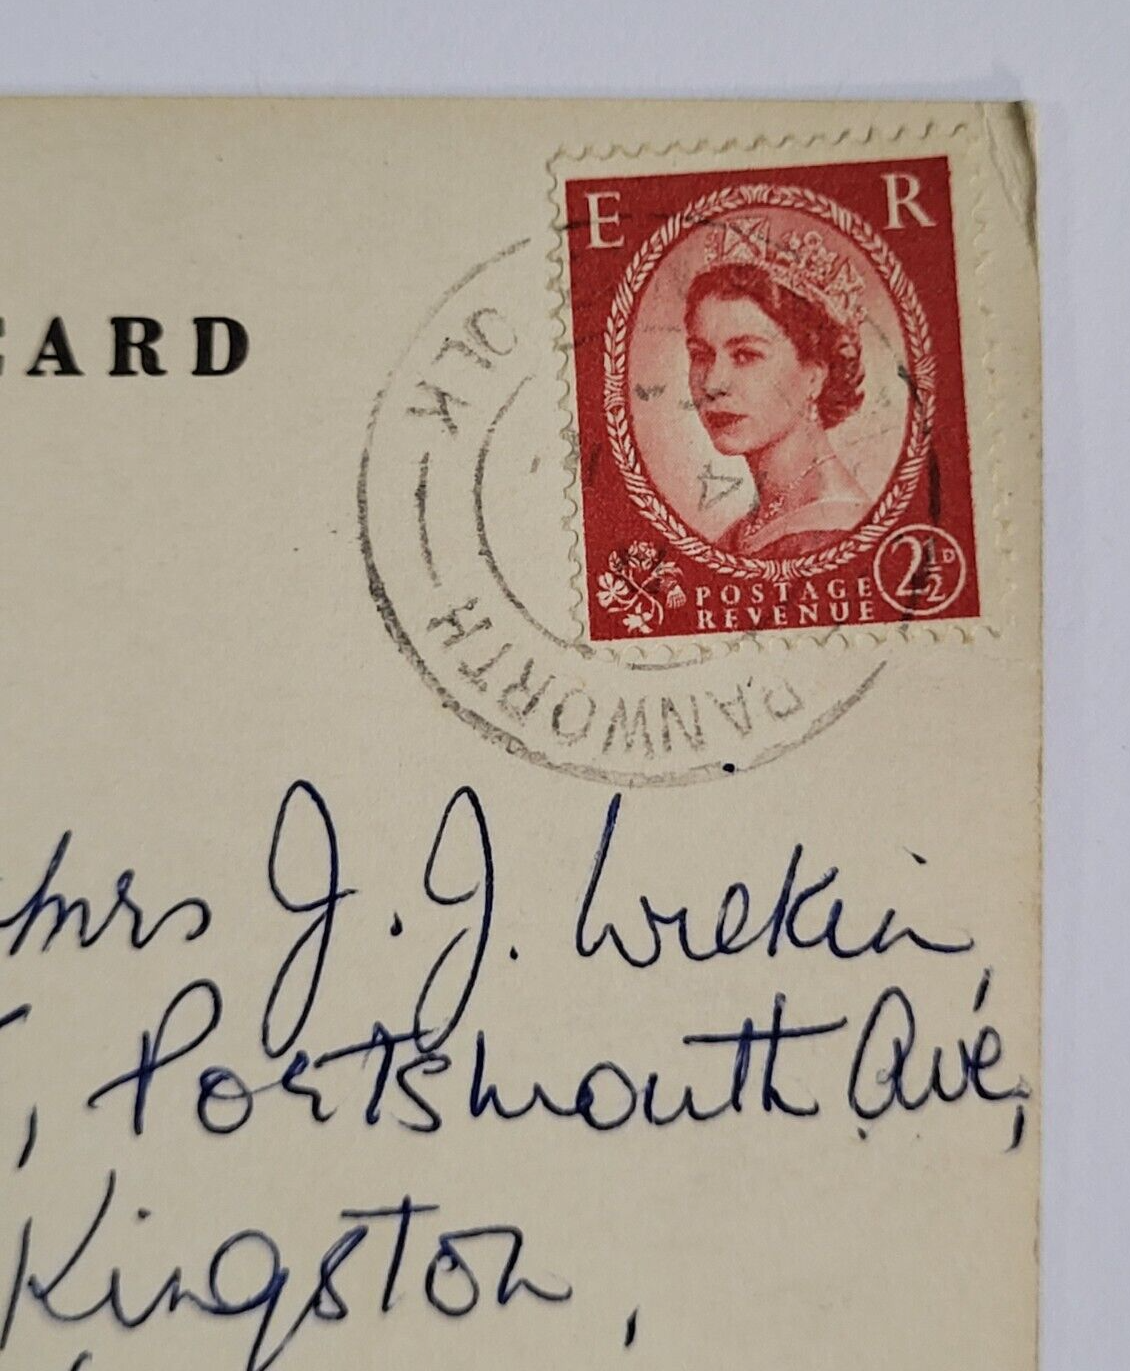 CARD
E R
POSTAGE
REVENUE
2½D
RANWORTH
OLK
Mrs J. J. Wrekin,
Portsmouth Ave,
Kingston,